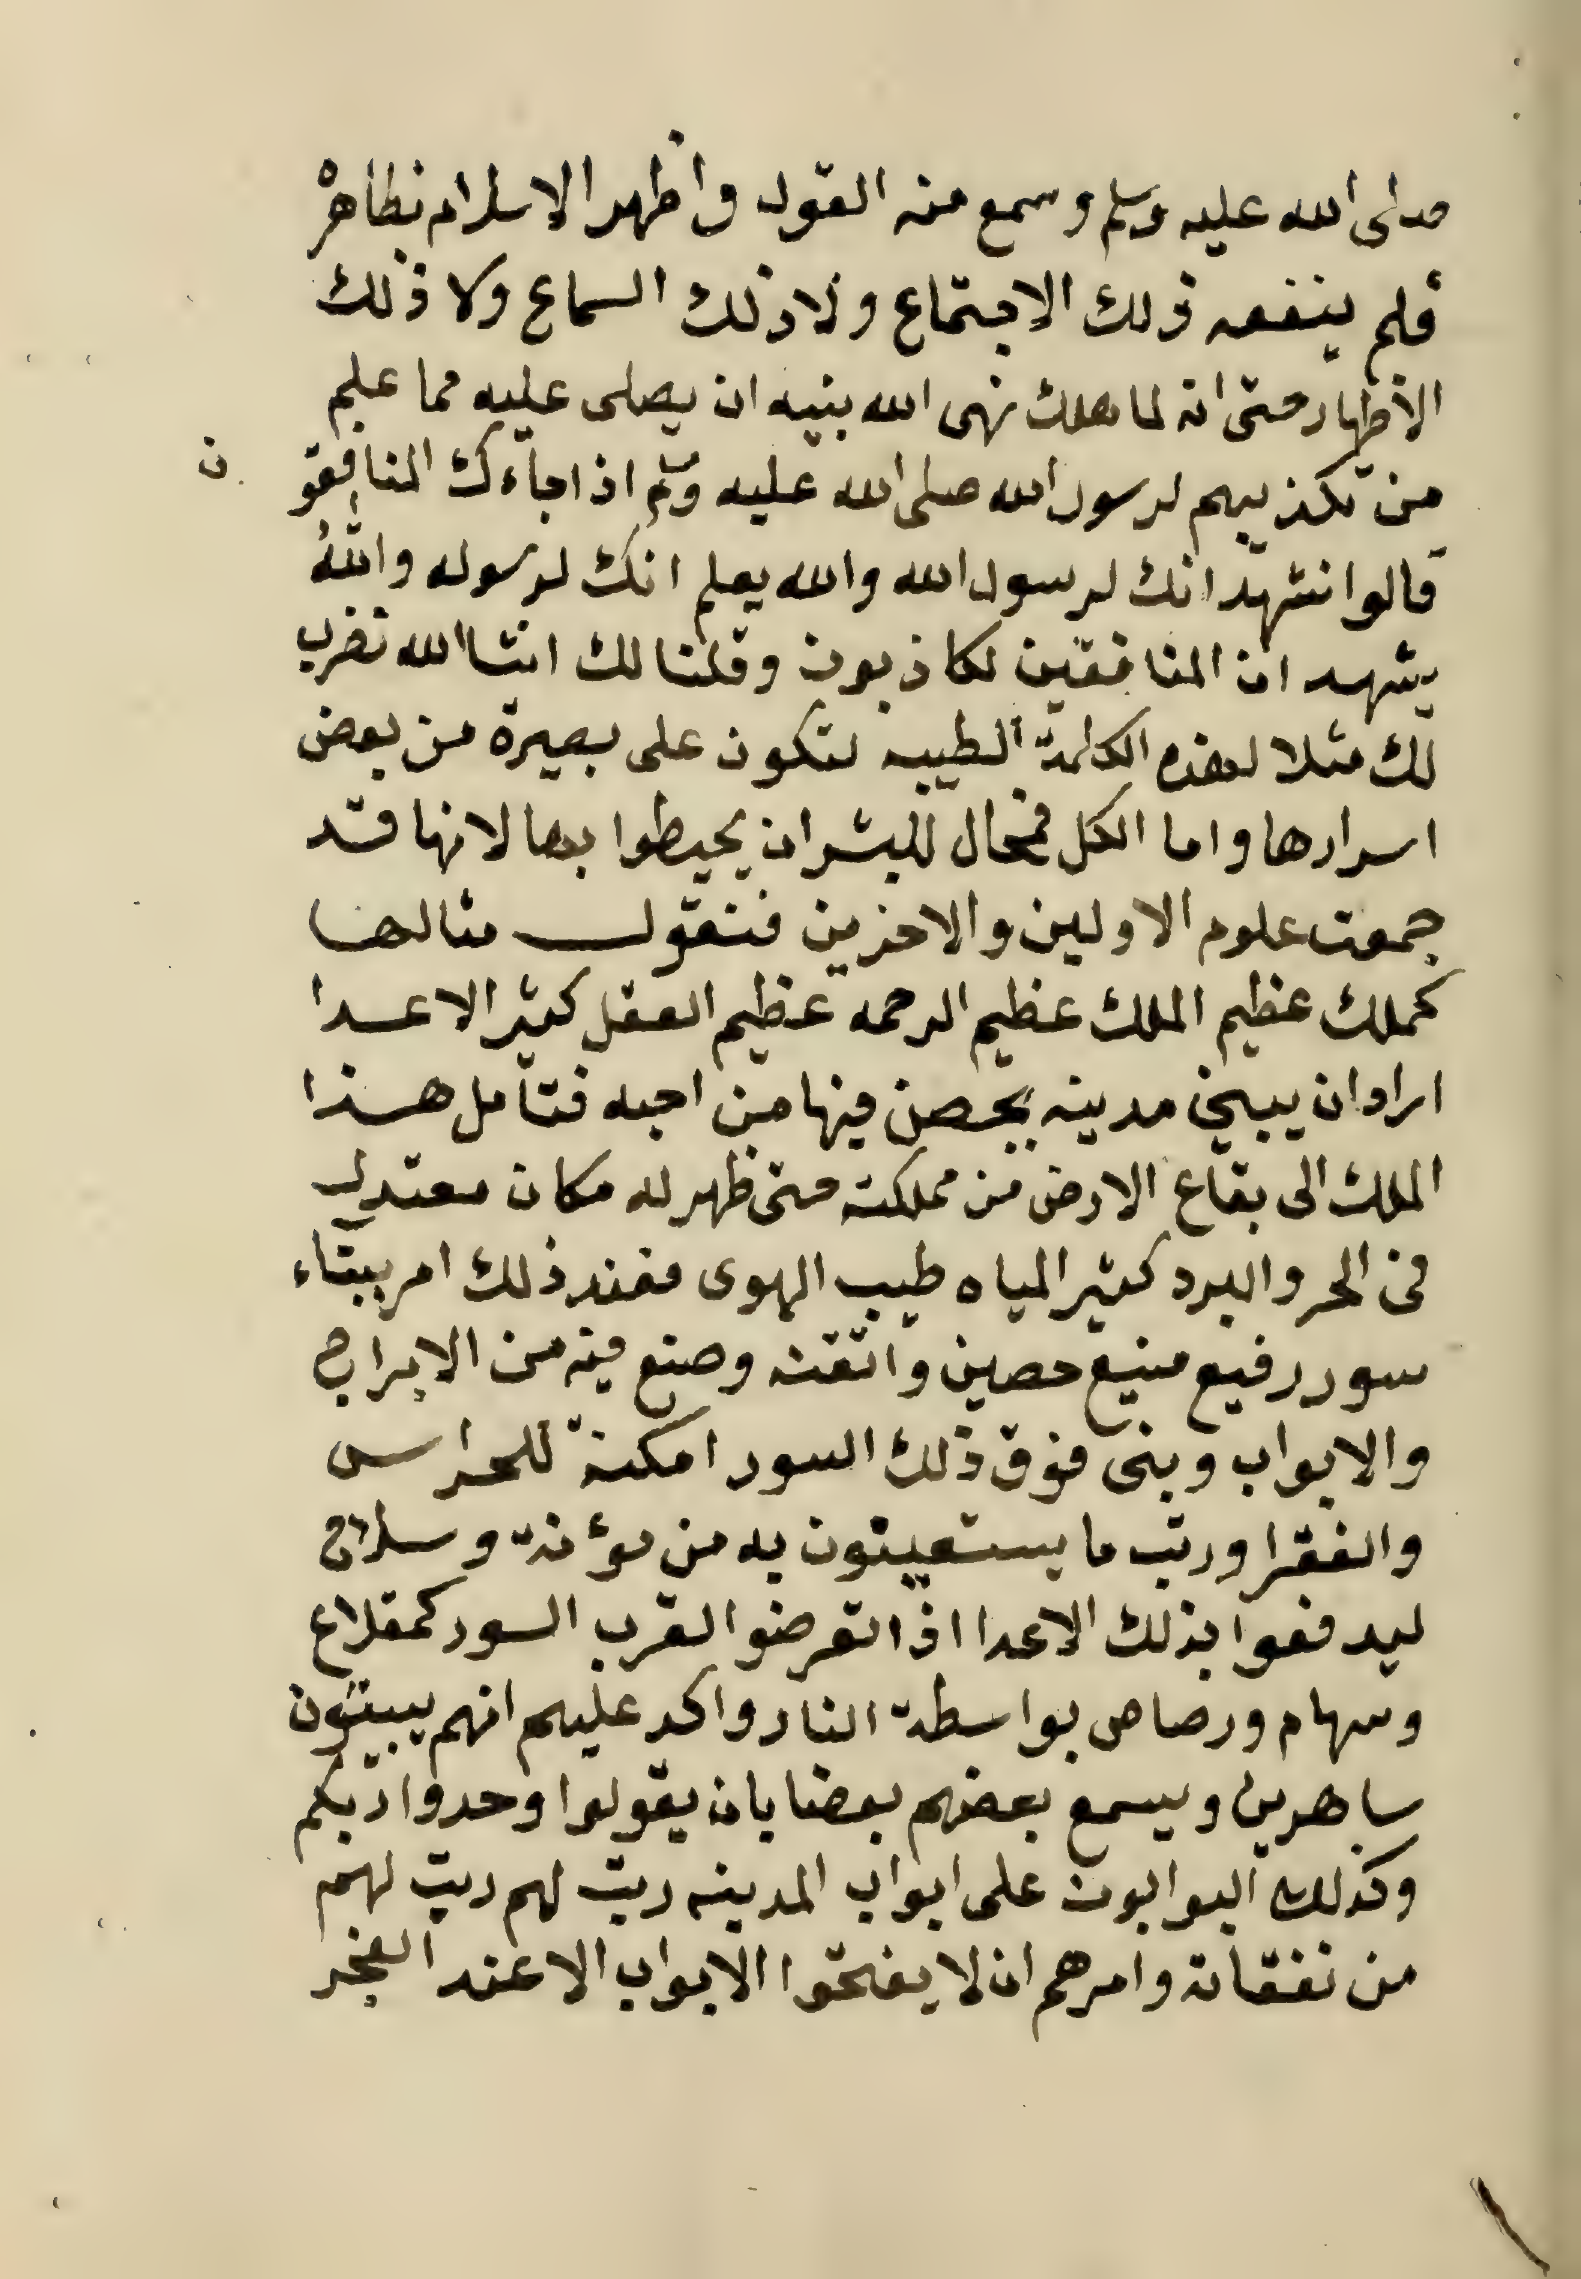 صلى الله عليه وسلم وسمع منه القول واظهر الاسلام بظاهره
فلم ينفعه ذلك الاجتماع ولا ذلك السماع ولا ذلك
الاظهار حتى انه لما هلك نهى الله نبيه ان يصلى عليه مما علم
من تكذيبهم لرسول الله صلى الله عليه وسلم اذا جاءك المنافقون
قالوا نشهد انك لرسول الله والله يعلم انك لرسوله والله
يشهد ان المنافقين لكاذبون وقلنا لك انشا الله نضرب
لك مثلا لهذه الكلمة الطيبه لتكون على بصيرة من بعض
اسرارها واما الكل فمحال للبشر ان يحيطوا بها لانها قد
جمعت علوم الاولين والاخرين فنقول مثالها
كملك عظيم الملك عظيم الرحمه عظيم العقل كثير الاعدا
اراد ان يبني مدينه يحصن فيها من احبه فتأمل هذا
الملك الى بقاع الارض من مملكته حتى ظهر له مكان معتدل
فى الحر والبرد كثير المياه طيب الهوى فعند ذلك امر ببناء
سور رفيع منيع حصين واتقنه وصنع فيه من الابراج
والابواب وبنى فوق ذلك السور امكنة للحراس
والفقرا ورتب ما يستعينون به من مؤنة وسلاح
ليدفعوا بذلك الاعدا اذا تعرضوا لقرب السور كمقلاع
وسهام ورصاص بواسطة النار واكد عليهم انهم يبيتون
ساهرين ويسمع بعضهم بعضا بان يقولوا وحدوا ربكم
وكذلك البوابون على ابواب المدينه رتب لهم رتب لهم
من نفقاته وامرهم ان لا يفتحوا الابواب الا عند الفجر